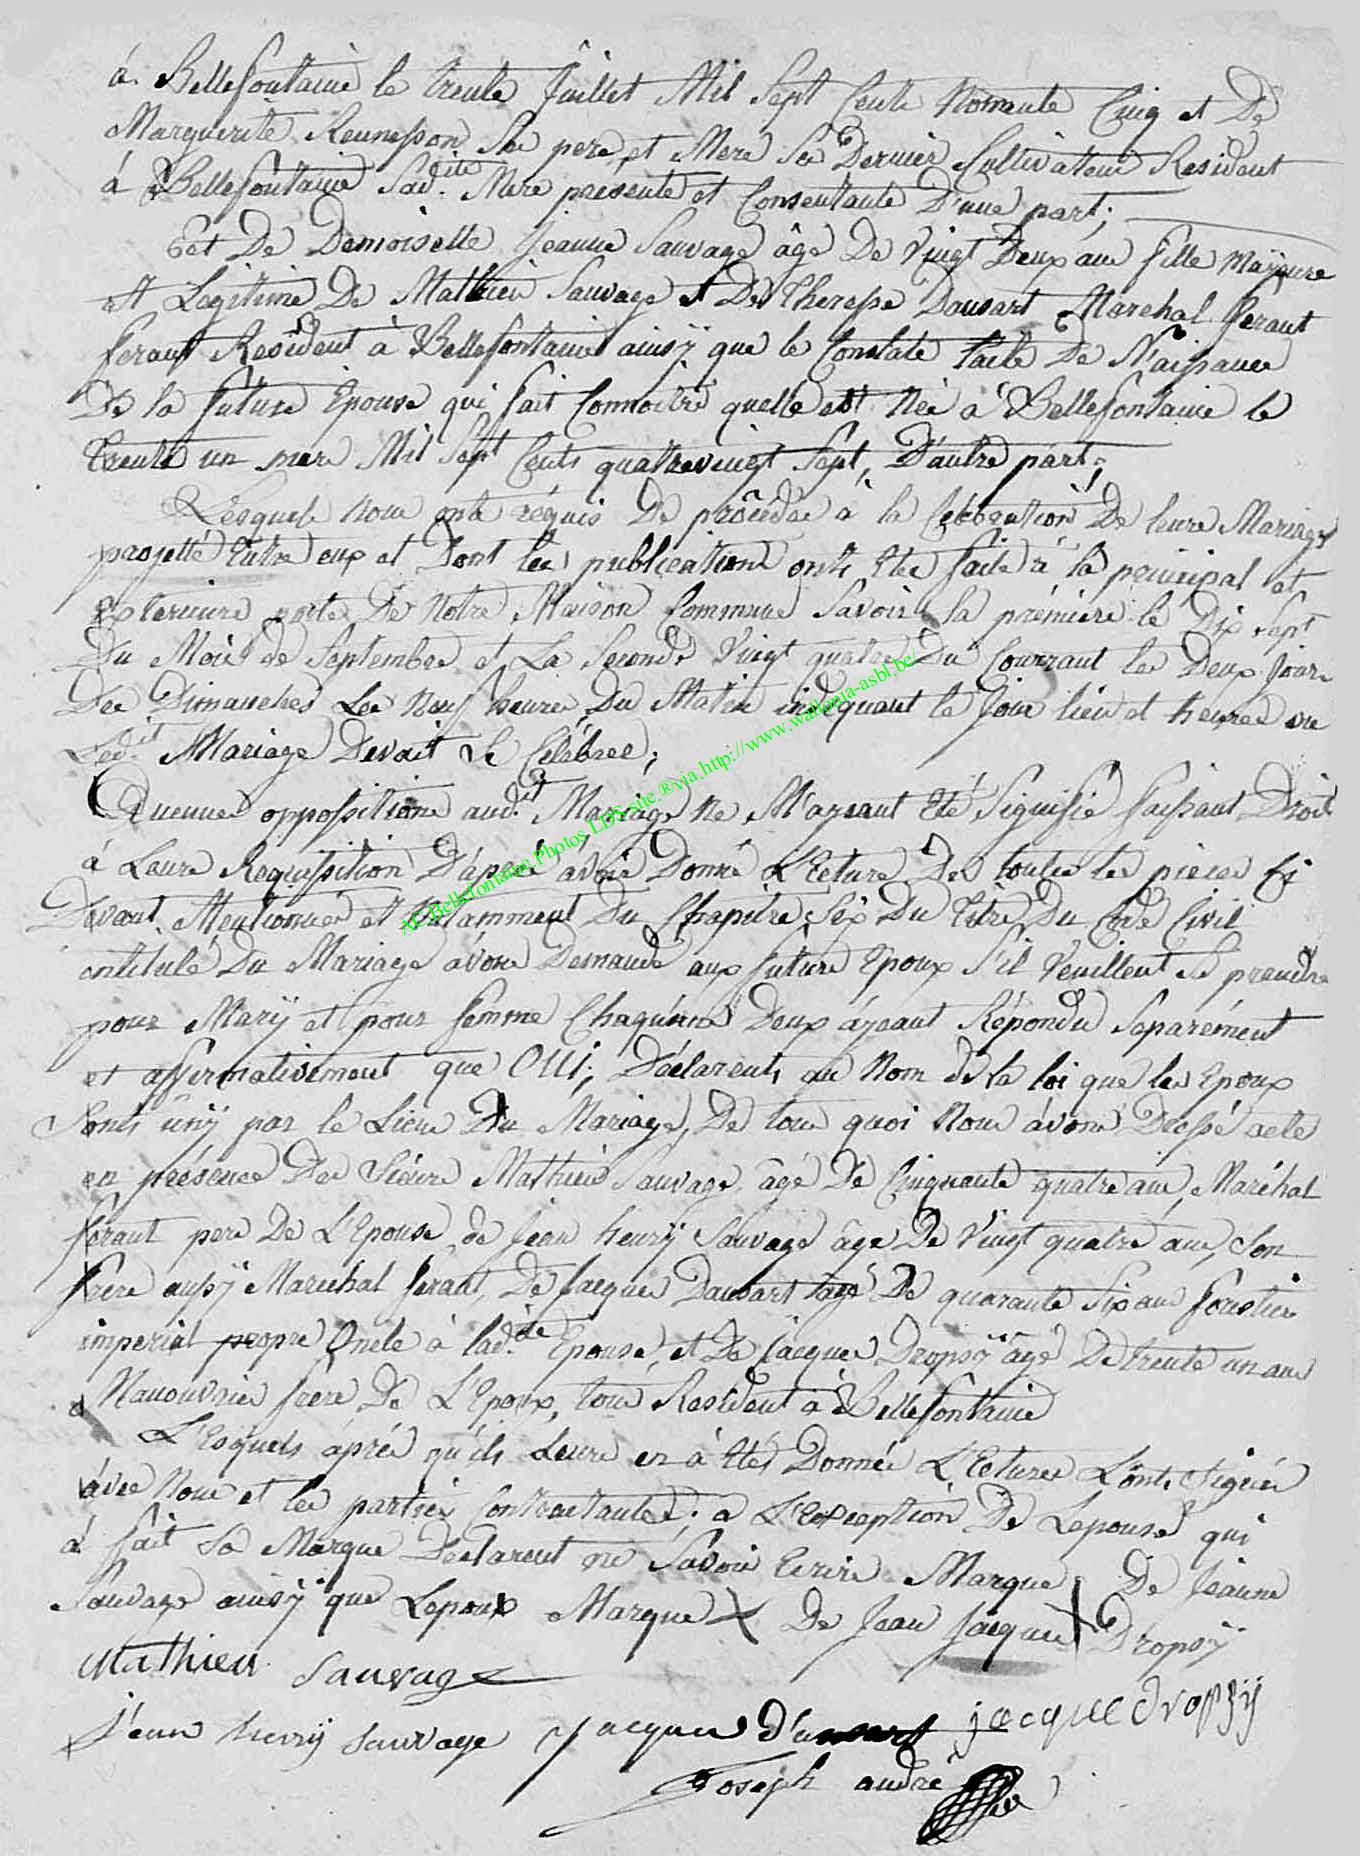 á Bellefontaine le trente Juillet Mil Sept Cents Nonente Cinq et De
Marguerite Reunesson Ses pere et Mere Ce Dernier Cultivateur Resident
á Bellefontaine Sadite Mere presente et Consentante D'une part;
Et De Demoiselle Jeanne Sauvage âgé De Vingt Deux ans fille Majeure
et Legitime De Mathieu Sauvage et De Therese Dausart Marechal feraut
feraut Resident á Bellefontaine ainsÿ que le Constate l'acte De N'aissance
De la future Epouse qui fait Connoitre quelle est Née á Bellefontaine le
trente un mars Mil Sept Cents quatrevingt Sept, D'autre part;
Lesquels Nous onts réquis De procéder á la Celebration De leurs Mariage
projetté Entre eux et Dont les publications onts Etés faite á la principal et
Exterieure porte De Notre Maison Commune Savoir la prémiere le Dix Sept
Du Mois de Septembre et La Seconde Vingt quatre Du Courrant les Deux Jours
Des Dimanches Les Neuf heures Du Matin indequant le Jour lieu et heures ou
Ledit Mariage Devait Se Célébrer;
Aucunes oppossitions audit Mariage Ne M'ayeant Eté Signifié faissant Droit
á Leurs Requissition D'aprés ávoir Donné L'Ecture De toutes les pieces Ci
Devant Mentionnés et Notamment Du Chapitre Six Du titre Du Code Civil
intitulé Du Mariage ávons Demandé aux future Epoux S'il Veuillent Se prendre
pour Marÿ et pour femme Chaqu'uns Deux áyeant Répondu Separément
et affirmativement que OUi; Déclarents au Nom de la loi que les Epoux
Sonts unÿ par le Liens Du Mariage, De tous quoi Nous ávons Dressé acte
en présence Des Sieurs Mathieu Sauvage âgé De Cinquante quatre ans, Maréhal
feraut pere De L'Epouse, de Jean henrÿ Sauvage âgé De Vingt quatre ans, Son
frere aussÿ Marechal feraut, De Jacques Dausart agé De quarante Six ans forestier
imperial propre Oncle á ladite Epouse, et De Jacques Dropsÿ âgé De trente un ans
Manouvrier frere De L'Epoux, tous Resident á Bellefontaine
L'Esquels áprés qu'ils Leurs en á Etés Donnée L'Ectures L'onts Signés
ávec Nous et les parties Contractantes; a L'Exception De Lepouse qui
á fait Sa Marque Déclarent ne Savoir Ecrire Marque De Jeanne
Sauvage ainsÿ que Lepoux Marque X De Jean Jacques X Dropsÿ
Mathieu Sauvage
j'ean henrÿ Sauvage Jacques d'ausart jacque dropsij
Joseph andré
AC.Bellefontaine.Photos LDS site.®via.http://www.wallonia-asbl.be/